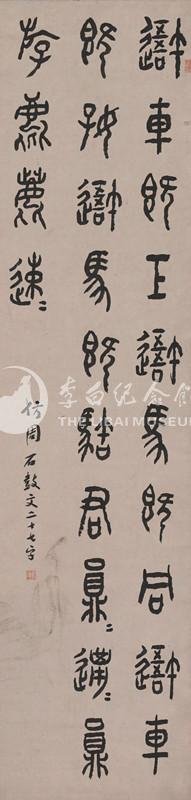 吾車既工吾馬既同吾車
既好吾馬既駓君員＝邋＝員
斿麀鹿速＝
仿周石鼓文二十七字
李白紀念館
THE LIBAI MUSEUM